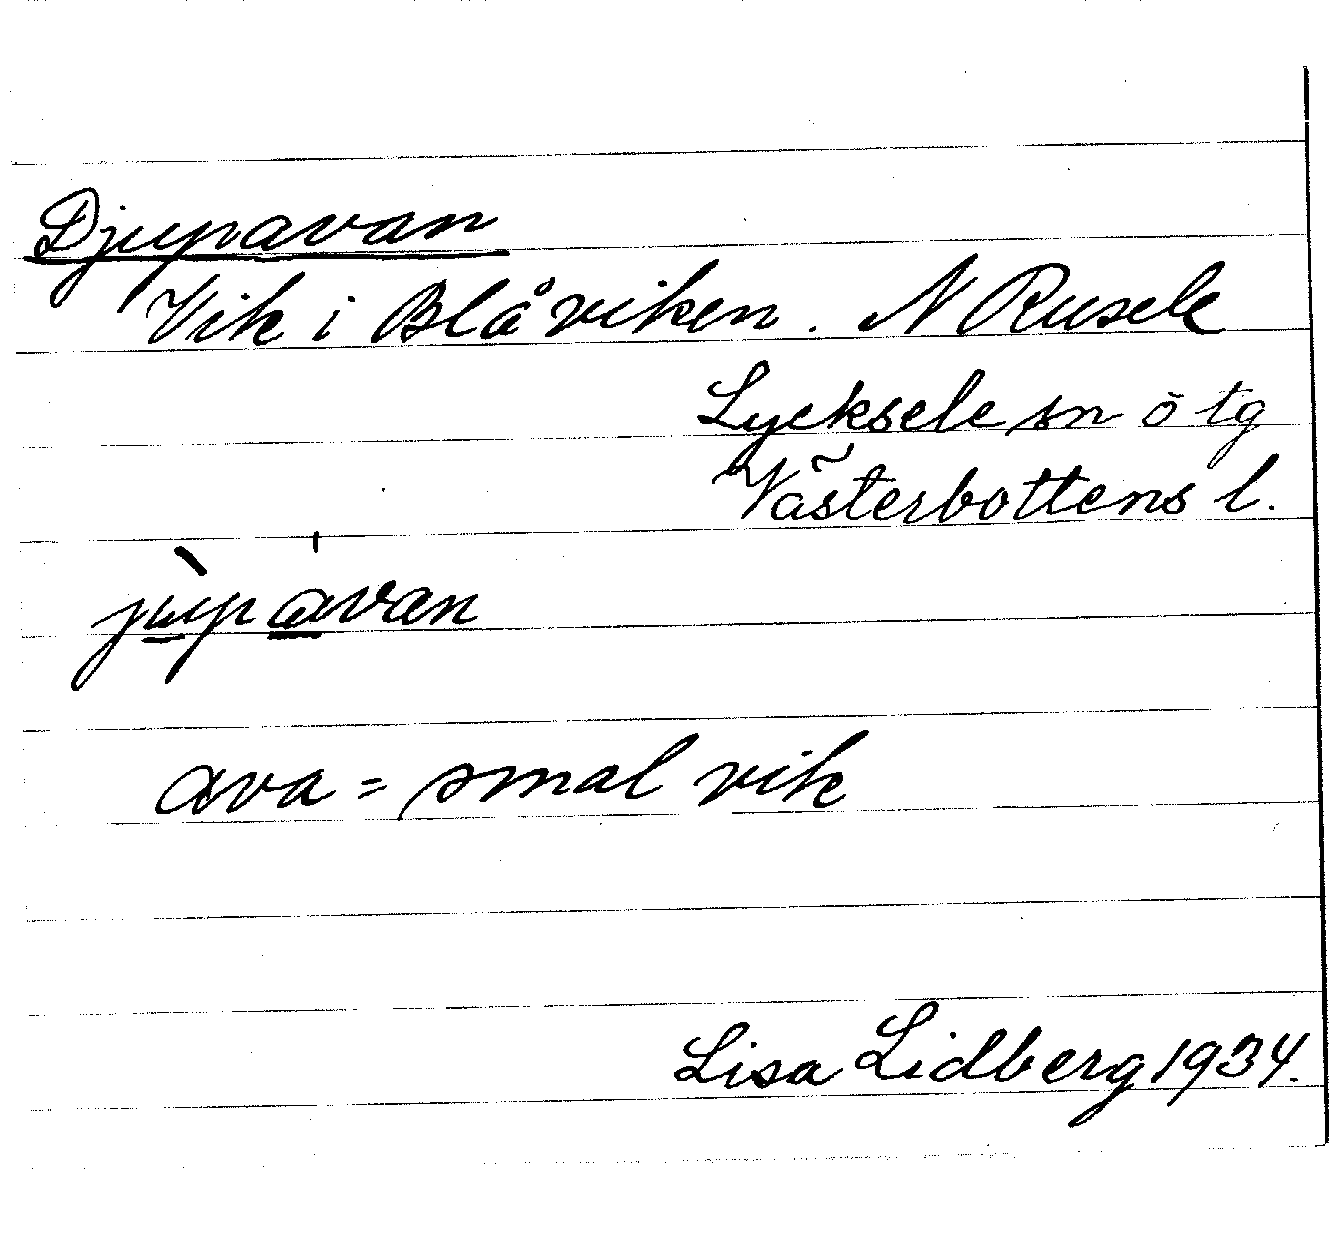 Djupavan
Vik i Blåviken. N Rusele
Lycksele sn o tg
Västerbottens l.
jùpávan
ava = smal vik
Lisa Lidberg 1934.